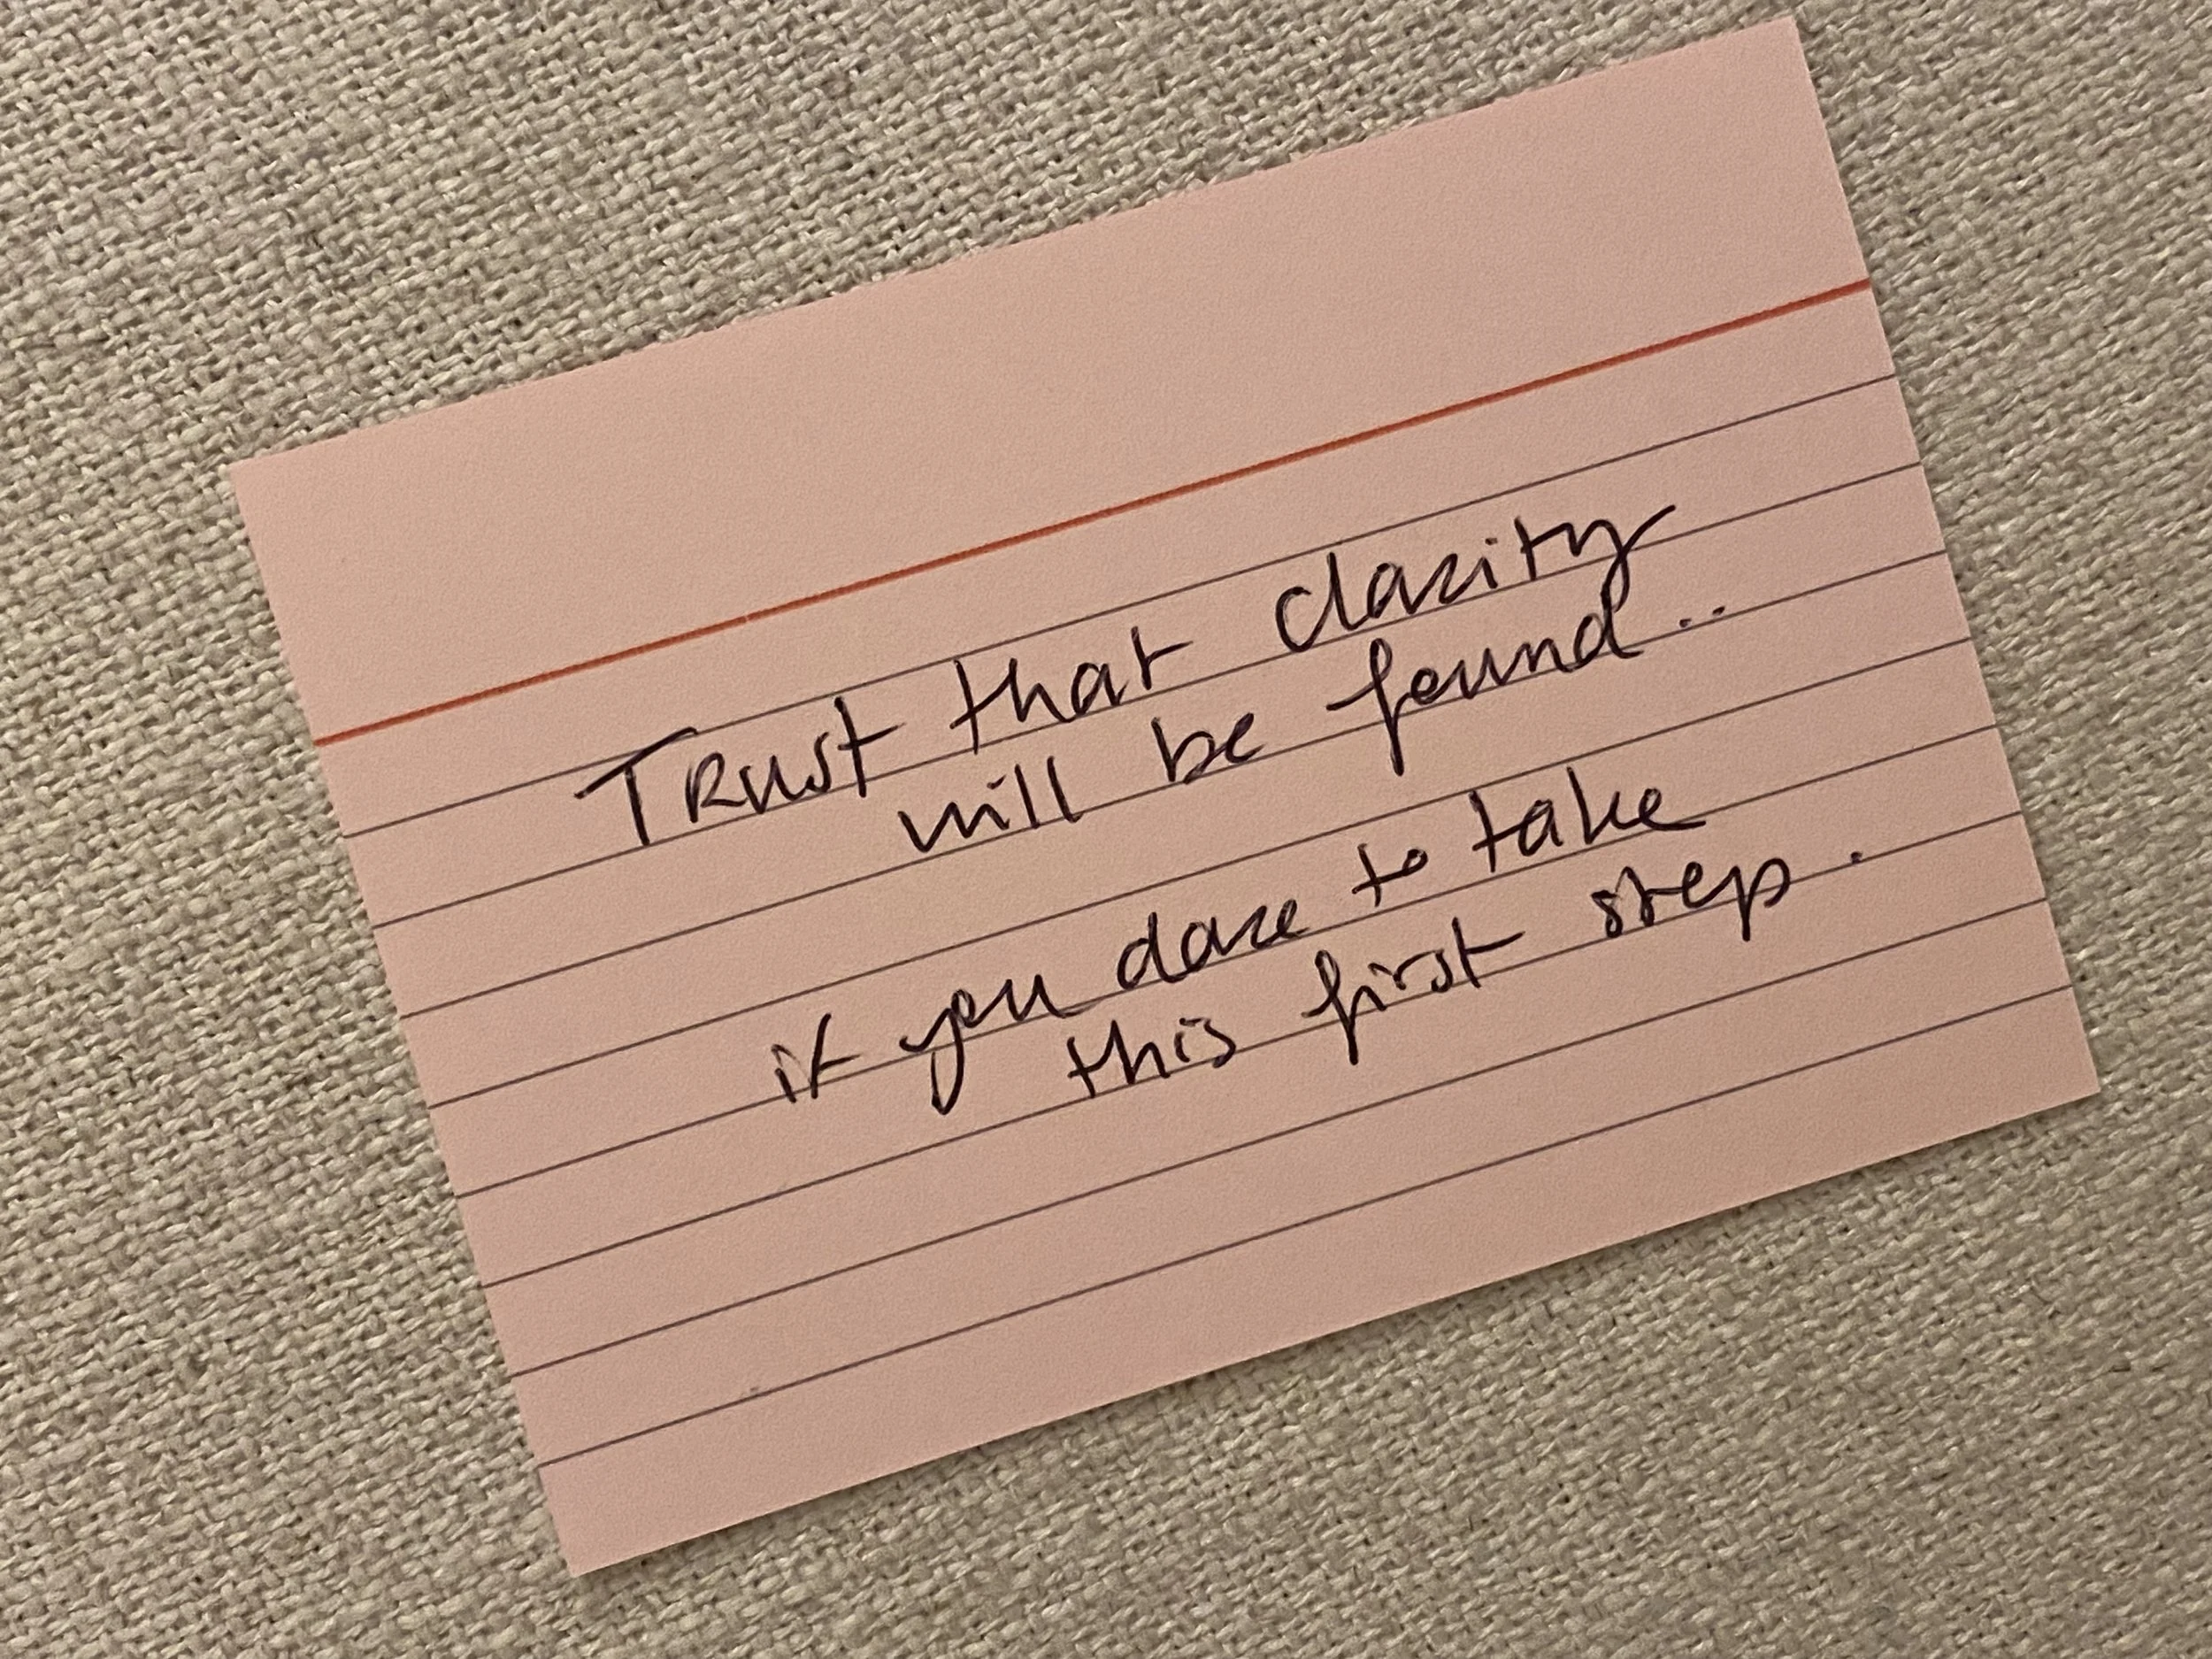 Trust that clarity
will be found...
if you dare to take
this first step.